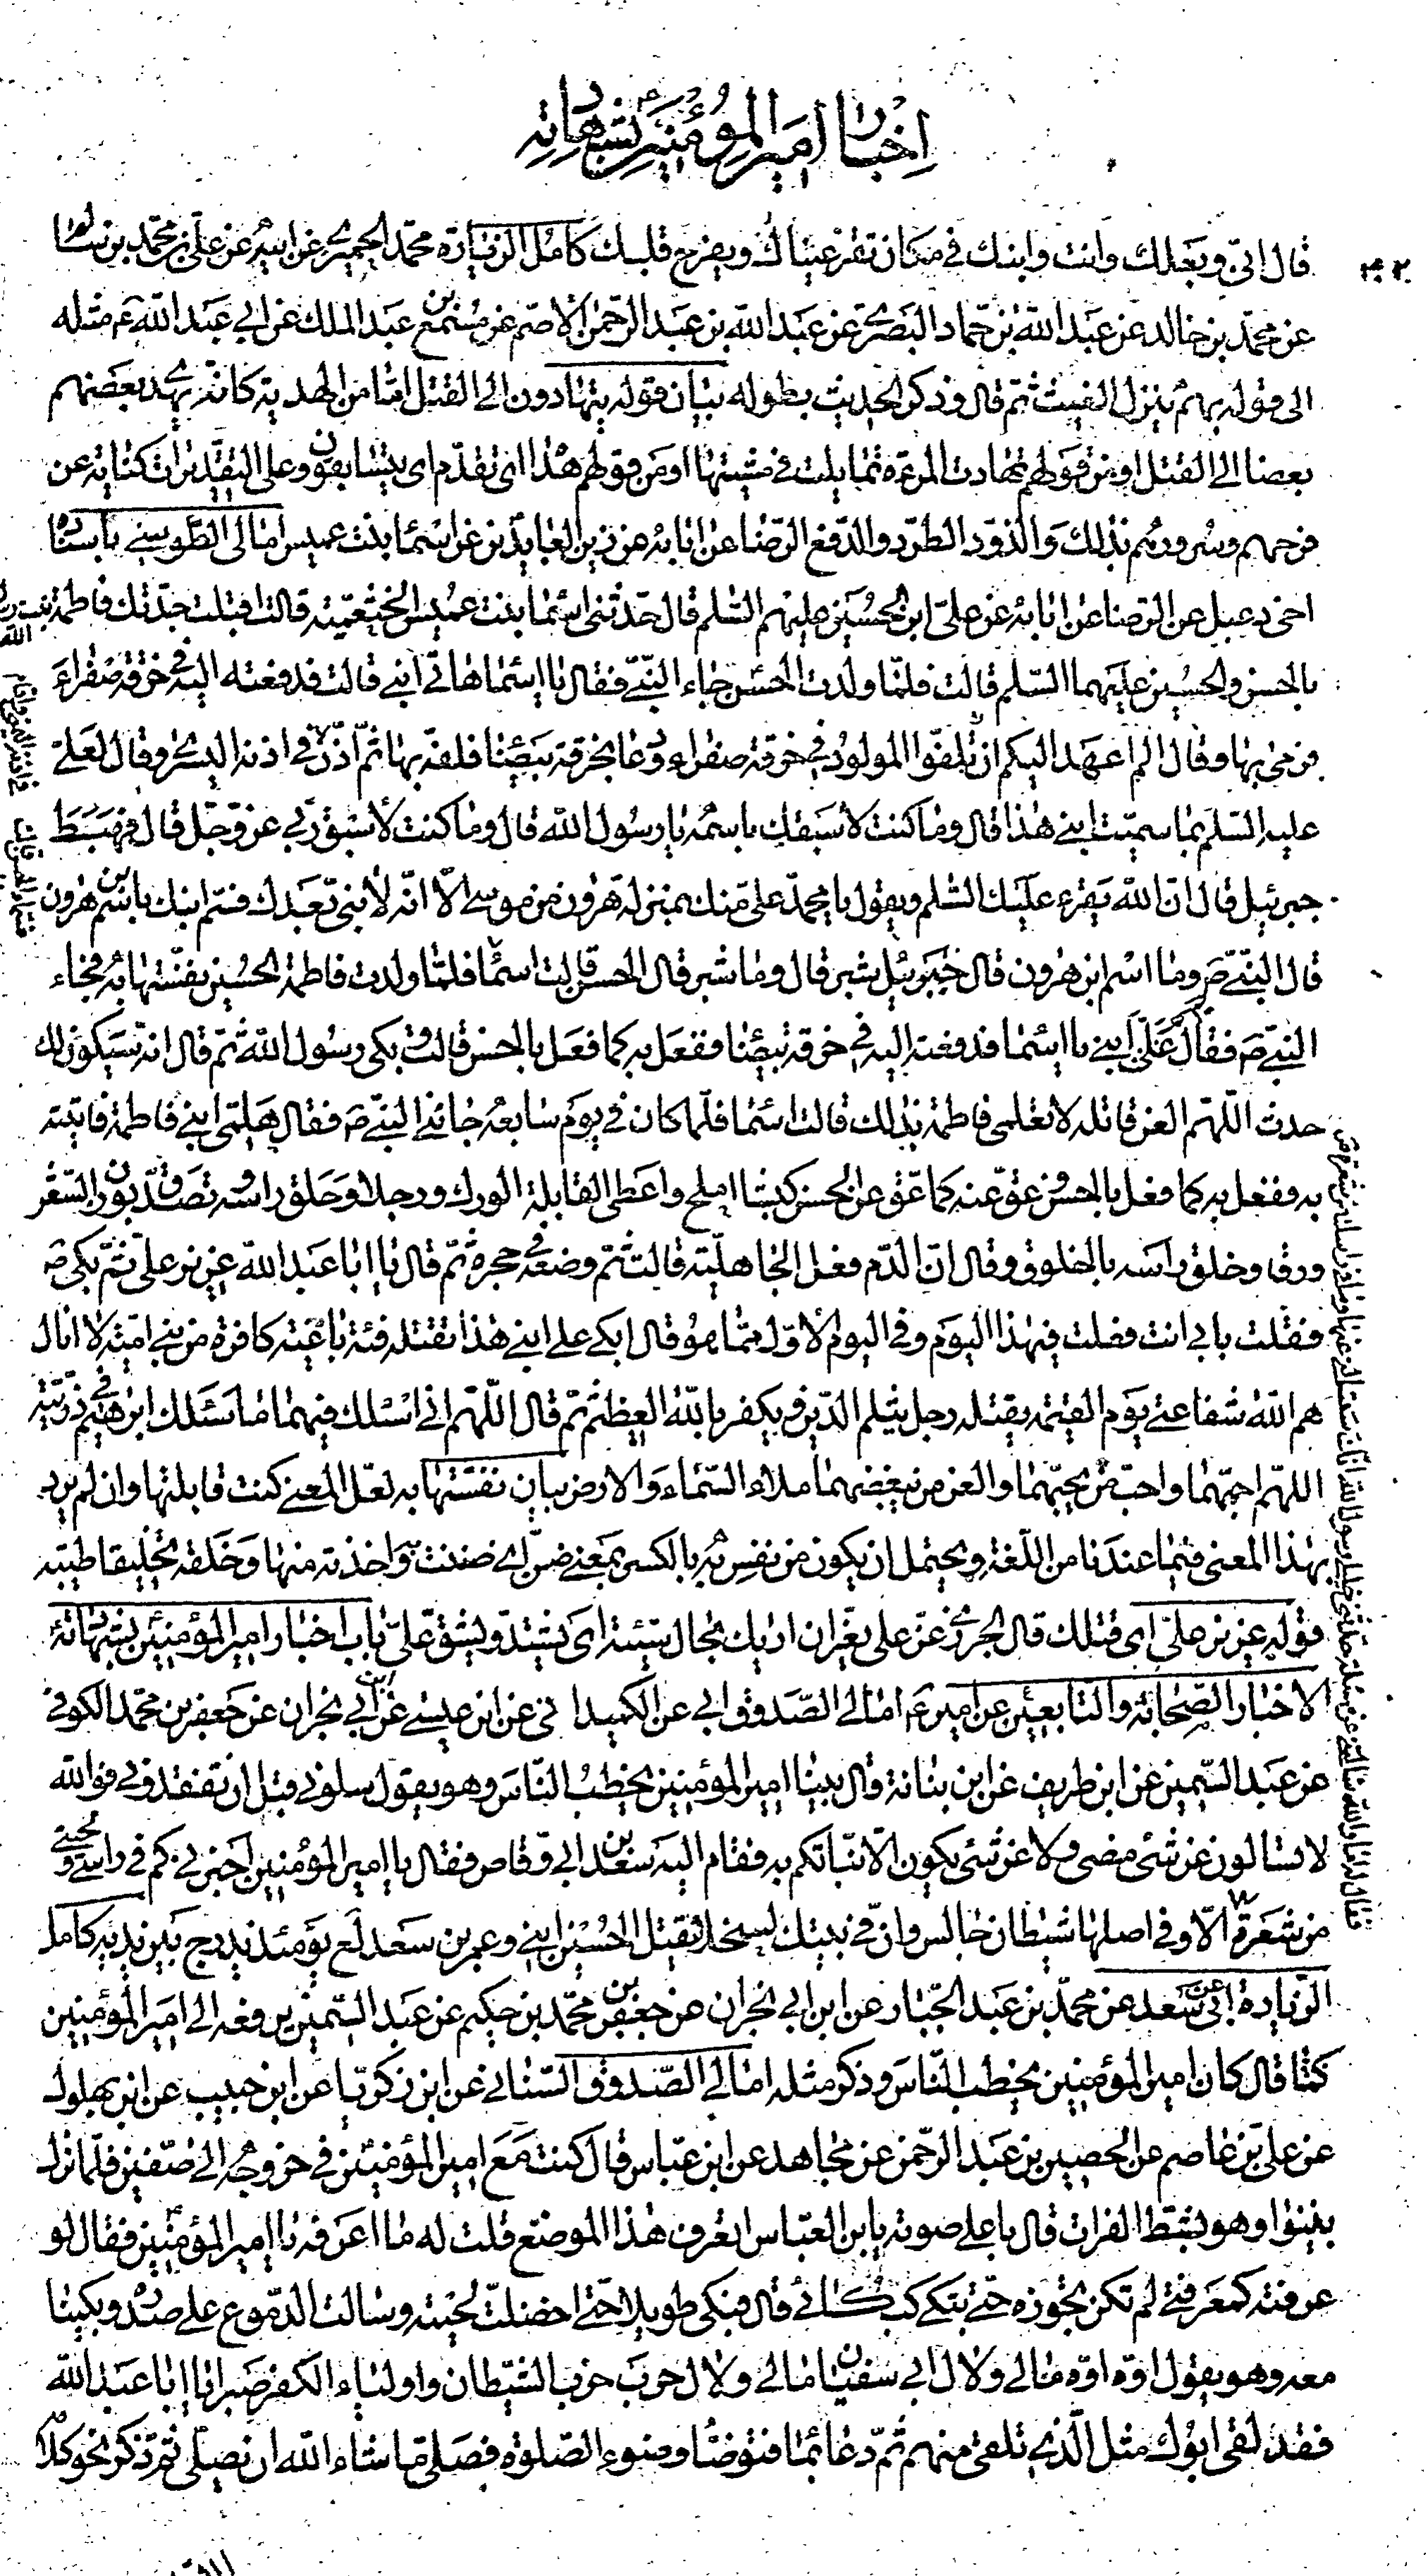 اخبار امير المؤمنين بشهادته
٢٠٤
قال انى وبعلك وانت وابنك فى مكان تقر عيناك ويفرح قلبك كامل الزيارة محمد الحميرى عن ابيه عن على بن محمد بن سالم
عن محمد بن خالد عن عبد الله بن حماد البصرى عن عبد الله بن عبد الرحمن الاصم عن مسمع بن عبد الملك عن ابى عبد الله ع مثله
الى قوله بهم ينزل الغيث ثم قال وذكر الحديث بطوله بيان قوله يتهادون الى القتل اما من الهدية كانه يهدى بعضهم
بعضا الى القتل او من قولهم تهادت المرءة تمايلت فى مشيتها او من قولهم هداه اى تقدم اى يتسابقون وعلى التقديرات كناية عن
فرحهم وسرورهم بذلك والذود الطرد والدفع الرضا عن ابائه عن زين العابدين عن اسما بنت عميس امالى الطوسى باسناد
اخى دعبل عن الرضا عن ابائه عن على ابن الحسين عليهم السلم قال حدثتنى اسما بنت عميس الخثعمية قالت اقبلت جدتك فاطمة بنت رسول الله
بالحسن والحسين عليهما السلم قالت فلما ولدت الحسن جاء النبى فقال يا اسما هاتى ابنى قالت فدفعته اليه فى خرقة صفراء
فرمى بها وقال الم اعهد اليكم ان لا تلفوا المولود فى خرقة صفراء ودعا بخرقة بيضا فلفه بها ثم اذن فى اذنه اليمنى واقام فى اذنه اليسرى وقال لعلى
عليه السلم بما سميت ابنى هذا قال وما كنت لاسبقك باسمه يا رسول الله قال وما كنت لاسبق ربى عز وجل قال فهبط
جبرئيل قال ان الله يقرء عليك السلم ويقول يا محمد على منك بمنزلة هرون من موسى الا انه لا نبى بعدك فسم ابنك باسم ابن هرون
قال النبى ص وما اسم ابن هرون قال جبرئيل شبر قال وما شبر قال الحسن قالت اسما فلما ولدت فاطمة الحسين نفستها به فجاء
النبى ص فقال هلمى ابنى يا اسما فدفعته اليه فى خرقة بيضا ففعل به كما فعل بالحسن قالت وبكى رسول الله ثم قال انه سيكون لك
حدث اللهم العن قاتله لا تعلمى فاطمة بذلك قالت اسما فلما كان فى يوم سابعه جائنى النبى ص فقال هلمى ابنى فاطمة فاتيته
به ففعل به كما فعل بالحسن وعق عنه كما عق عن الحسن كبشا املح واعطى القابلة الورك ورجلا وحلق راسه وتصدق بوزن الشعر
ورقا وخلق راسه بالخلوق وقال ان الدم فعل الجاهلية قالت ثم وضعه فى حجره ثم قال يا ابا عبد الله عزيز على ثم بكى ص
فقلت بابى انت فعلت فى هذا اليوم وفى اليوم الاول فما هو قال ابكى على ابنى هذا تقتله فئة باغية كافرة من بنى امية لا انال
هم الله شفاعتى يوم القيمة يقتله رجل يثلم الدين ويكفر بالله العظيم ثم قال اللهم انى اسئلك فيهما ما سئلك ابرهيم فى ذريته
اللهم احبهما واحب من يحبهما والعن من يبغضهما ملاء السماء والارض بيان نفستها به لعل المعنى كنت قابلتها وان لم يرد
بهذا المعنى فيما عندنا من اللغة ويحتمل ان يكون من نفس به بالكسر بمعنى ضن اى ضننت به واخذته منها وخلقه تخليقا طيبه
قوله عزيز على اى قتلك قال الجزرى عز على يعز ان اراك بحال سيئة اى يشتد ويشق على باب اخبار امير المؤمنين بشهادته
الاخبار الصحابة والتابعين عن امير ع امالى الصدوق ابى عن الكميدانى عن ابن عيسى عن ابن ابى نجران عن جعفر بن محمد الكوفى
عن عبد السمين عن ابن طريف عن ابن نباتة قال بينا امير المؤمنين يخطب الناس وهو يقول سلونى قبل ان تفقدونى فوالله
لا تسالون عن شئ مضى ولا عن شئ يكون الا نباتكم به فقام اليه سعد بن ابى وقاص فقال يا امير المؤمنين اخبرنى كم فى راسى ولحيتى
من شعرة الا وفى اصلها شيطان جالس وان فى بيتك لسخلا يقتل الحسين ابنى وعمر بن سعد لع يومئذ يدرج بين يديه كامل
الزيارة ابى عن سعد عن محمد بن عبد الجبار عن ابن ابى نجران عن جعفر بن محمد بن حكيم عن عبد السمين يرفعه الى امير المؤمنين
كمثا قال كان امير المؤمنين يخطب الناس وذكر مثله امالى الصدوق السنانى عن ابن زكريا عن ابن حبيب عن ابن بهلول
عن على بن عاصم عن الحصين بن عبد الرحمن عن مجاهد عن ابن عباس قال كنت مع امير المؤمنين فى خروجه الى صفين فلما نزل
بنينوا وهو بشط الفرات قال باعلى صوته يا بن العباس اتعرف هذا الموضع قلت له ما اعرفه يا امير المؤمنين فقال لو
عرفته كمعرفتى لم تكن تجوزه حتى تبكى كبكائى قال فبكى طويلا حتى اخضلت لحيته وسالت الدموع على صدره وبكينا
معه وهو يقول اوه اوه مالى ولال ابى سفيان مالى ولال حرب حزب الشيطان واولياء الكفر صبرا يا ابا عبد الله
فقد لقى ابوك مثل الذى تلقى منهم ثم دعا بما فتوضا وضوء الصلوة فصلى ما شاء الله ان يصلى ثم ذكر نحو كلا